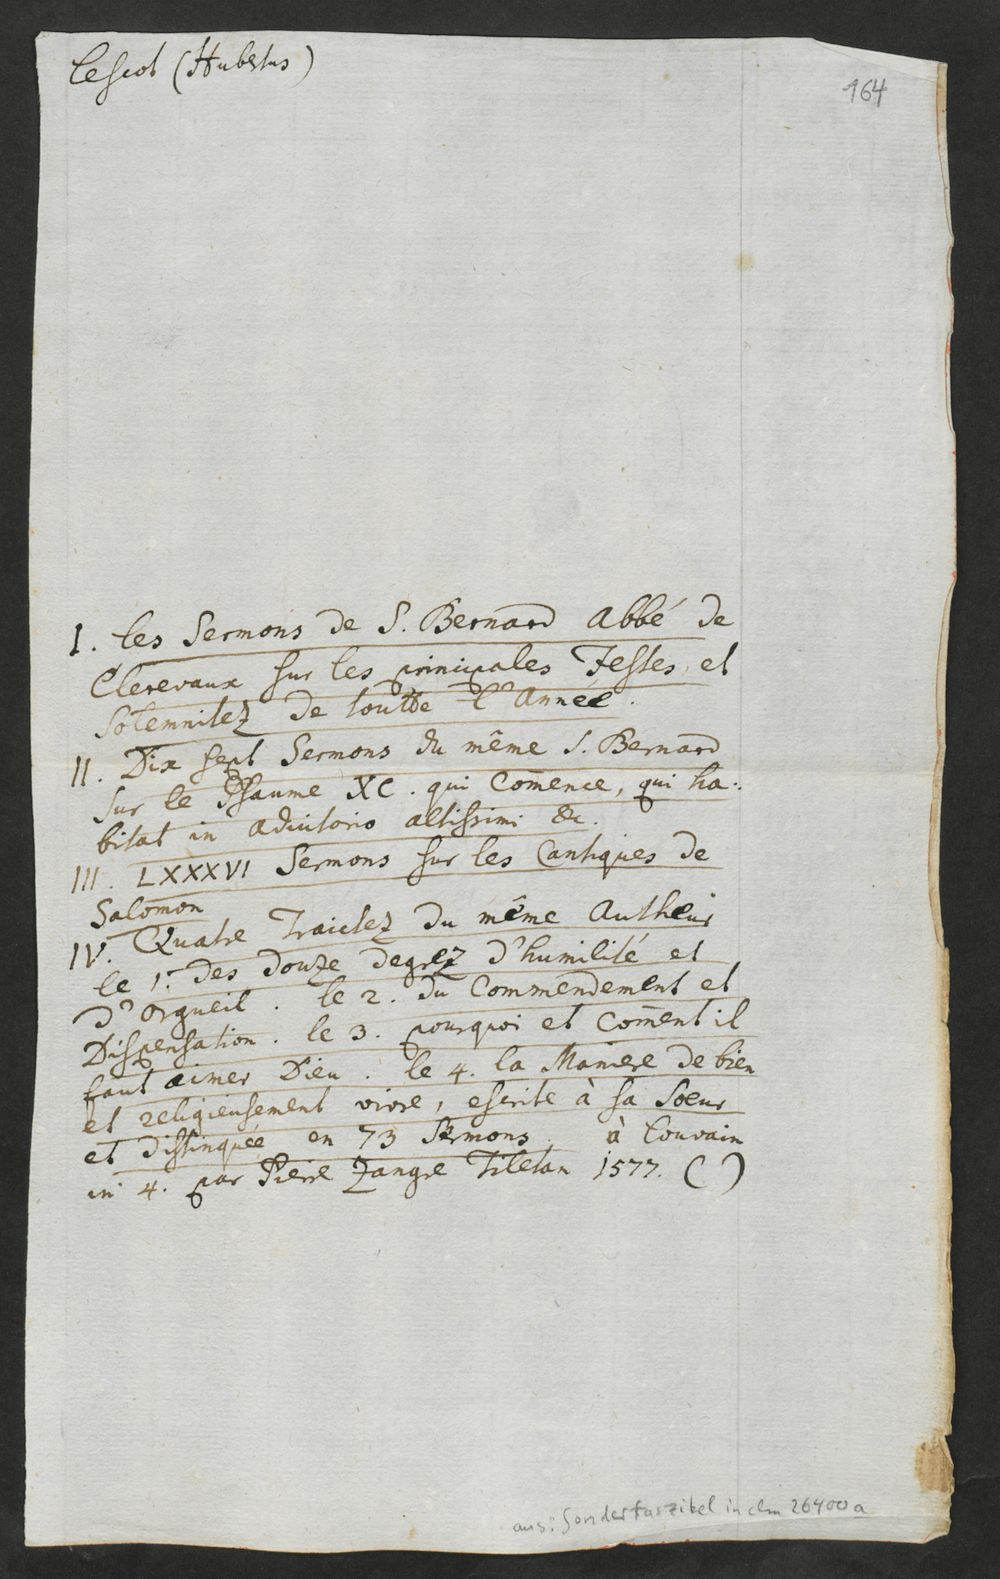 Lescot (Hubertus)
164
I. les Sermons de S. Bernard Abbé de
Clerevaux sur les principales Festes et
Solemnitez de toutte l'Année.
II. Dix sept Sermons du même S. Bernard
sur le Psaume XC. qui Com̄ence, qui ha-
bitat in adiutorio altissimi &c.
III. LXXXVI Sermons sur les Cantiques de
Salomon
IV. Quatre Traictez du même Autheur
le 1. des douze degrez d'humilité et
d'orgueil. le 2. du Commendement et
Dispensation. le 3. pourquoi et Com̄ent il
faut aimer Dieu. le 4. la Maniere de bien
et religieusement vivre, escrite à sa Soeur
et distinquée en 73 Sermons. à Louvain
in 4. par Pierre Zangre Tiletan 1577. ( )
aus: Sonderfaszikel in clm 26400a